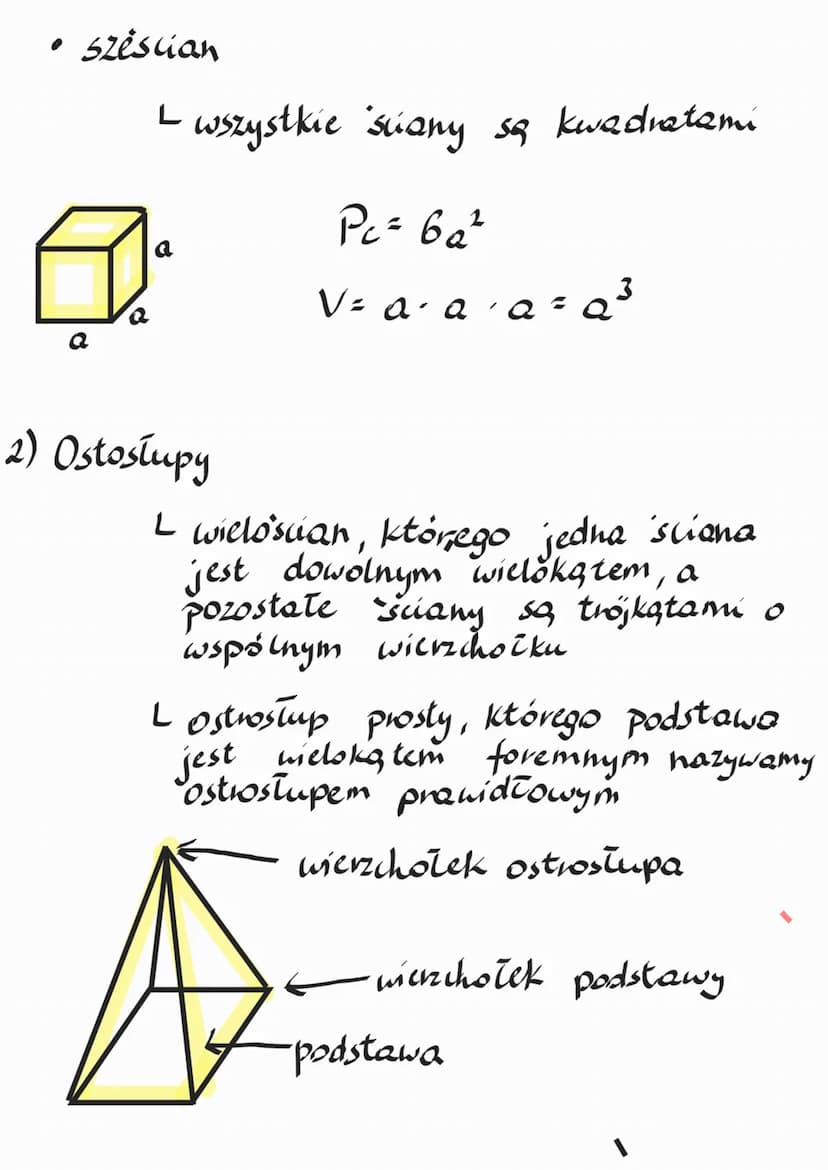 • sześcian
└ wszystkie ściany są kwadratami
Pc = 6a²
V = a · a · a = a³
a
a
a
2) Ostosłupy
└ wielościan, którego jedna ściana
jest dowolnym wielokątem, a
pozostałe ściany są trójkątami o
wspólnym wierzchołku
└ ostrosłup prosty, którego podstawa
jest wielokątem foremnym nazywamy
ostrosłupem prawidłowym
wierzchołek ostrosłupa
wierzchołek podstawy
podstawa